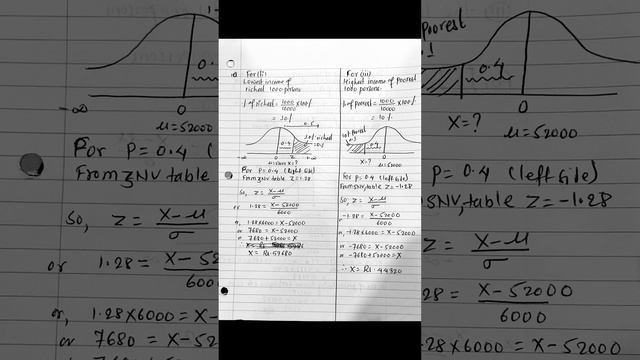 For (ii)
Lowest income of
richest 1000 persons.
% of richest = 1000/10000 x 100%
= 10%
0.5
0.4
10% richest
= 0.1
-∞ 0 z +∞
X=?
For P = 0.4 (Right side)
From SNV table Z = 1.28
So, Z = X-μ/σ
or 1.28 = X - 52000/6000
or, 1.28 x 6000 = X - 52000
or 7680 = X - 52000
or 7680 + 52000 = X
X = Rs. 59680
For (iii)
Highest income of poorest
1000 persons.
% of poorest = 1000/10000 x 100%
= 10%
10% poorest
0.1
0.4
0
X=?
μ = 52000
For P = 0.4 (left side)
From SNV, table Z = -1.28
So, Z = X-μ/σ
-1.28 = X - 52000/6000
or, -1.28 x 6000 = X - 52000
or -7680 = X - 52000
or -7680 + 52000 = X
∴ X = Rs. 44320
-∞ 0
μ = 52000
For P = 0.4 (
From SNV table
So, Z = X-μ/σ
or 1.28 = X - 52
600
or, 1.28 x 6000 = X -
or 7680 = X - 52
poorest
0.1
0.4
0
X=?
μ = 52000
P = 0.4 (left side)
SNV, table Z = -1.28
Z = X-μ/σ
.28 = X - 52000/6000
.28 x 6000 = X - 52000